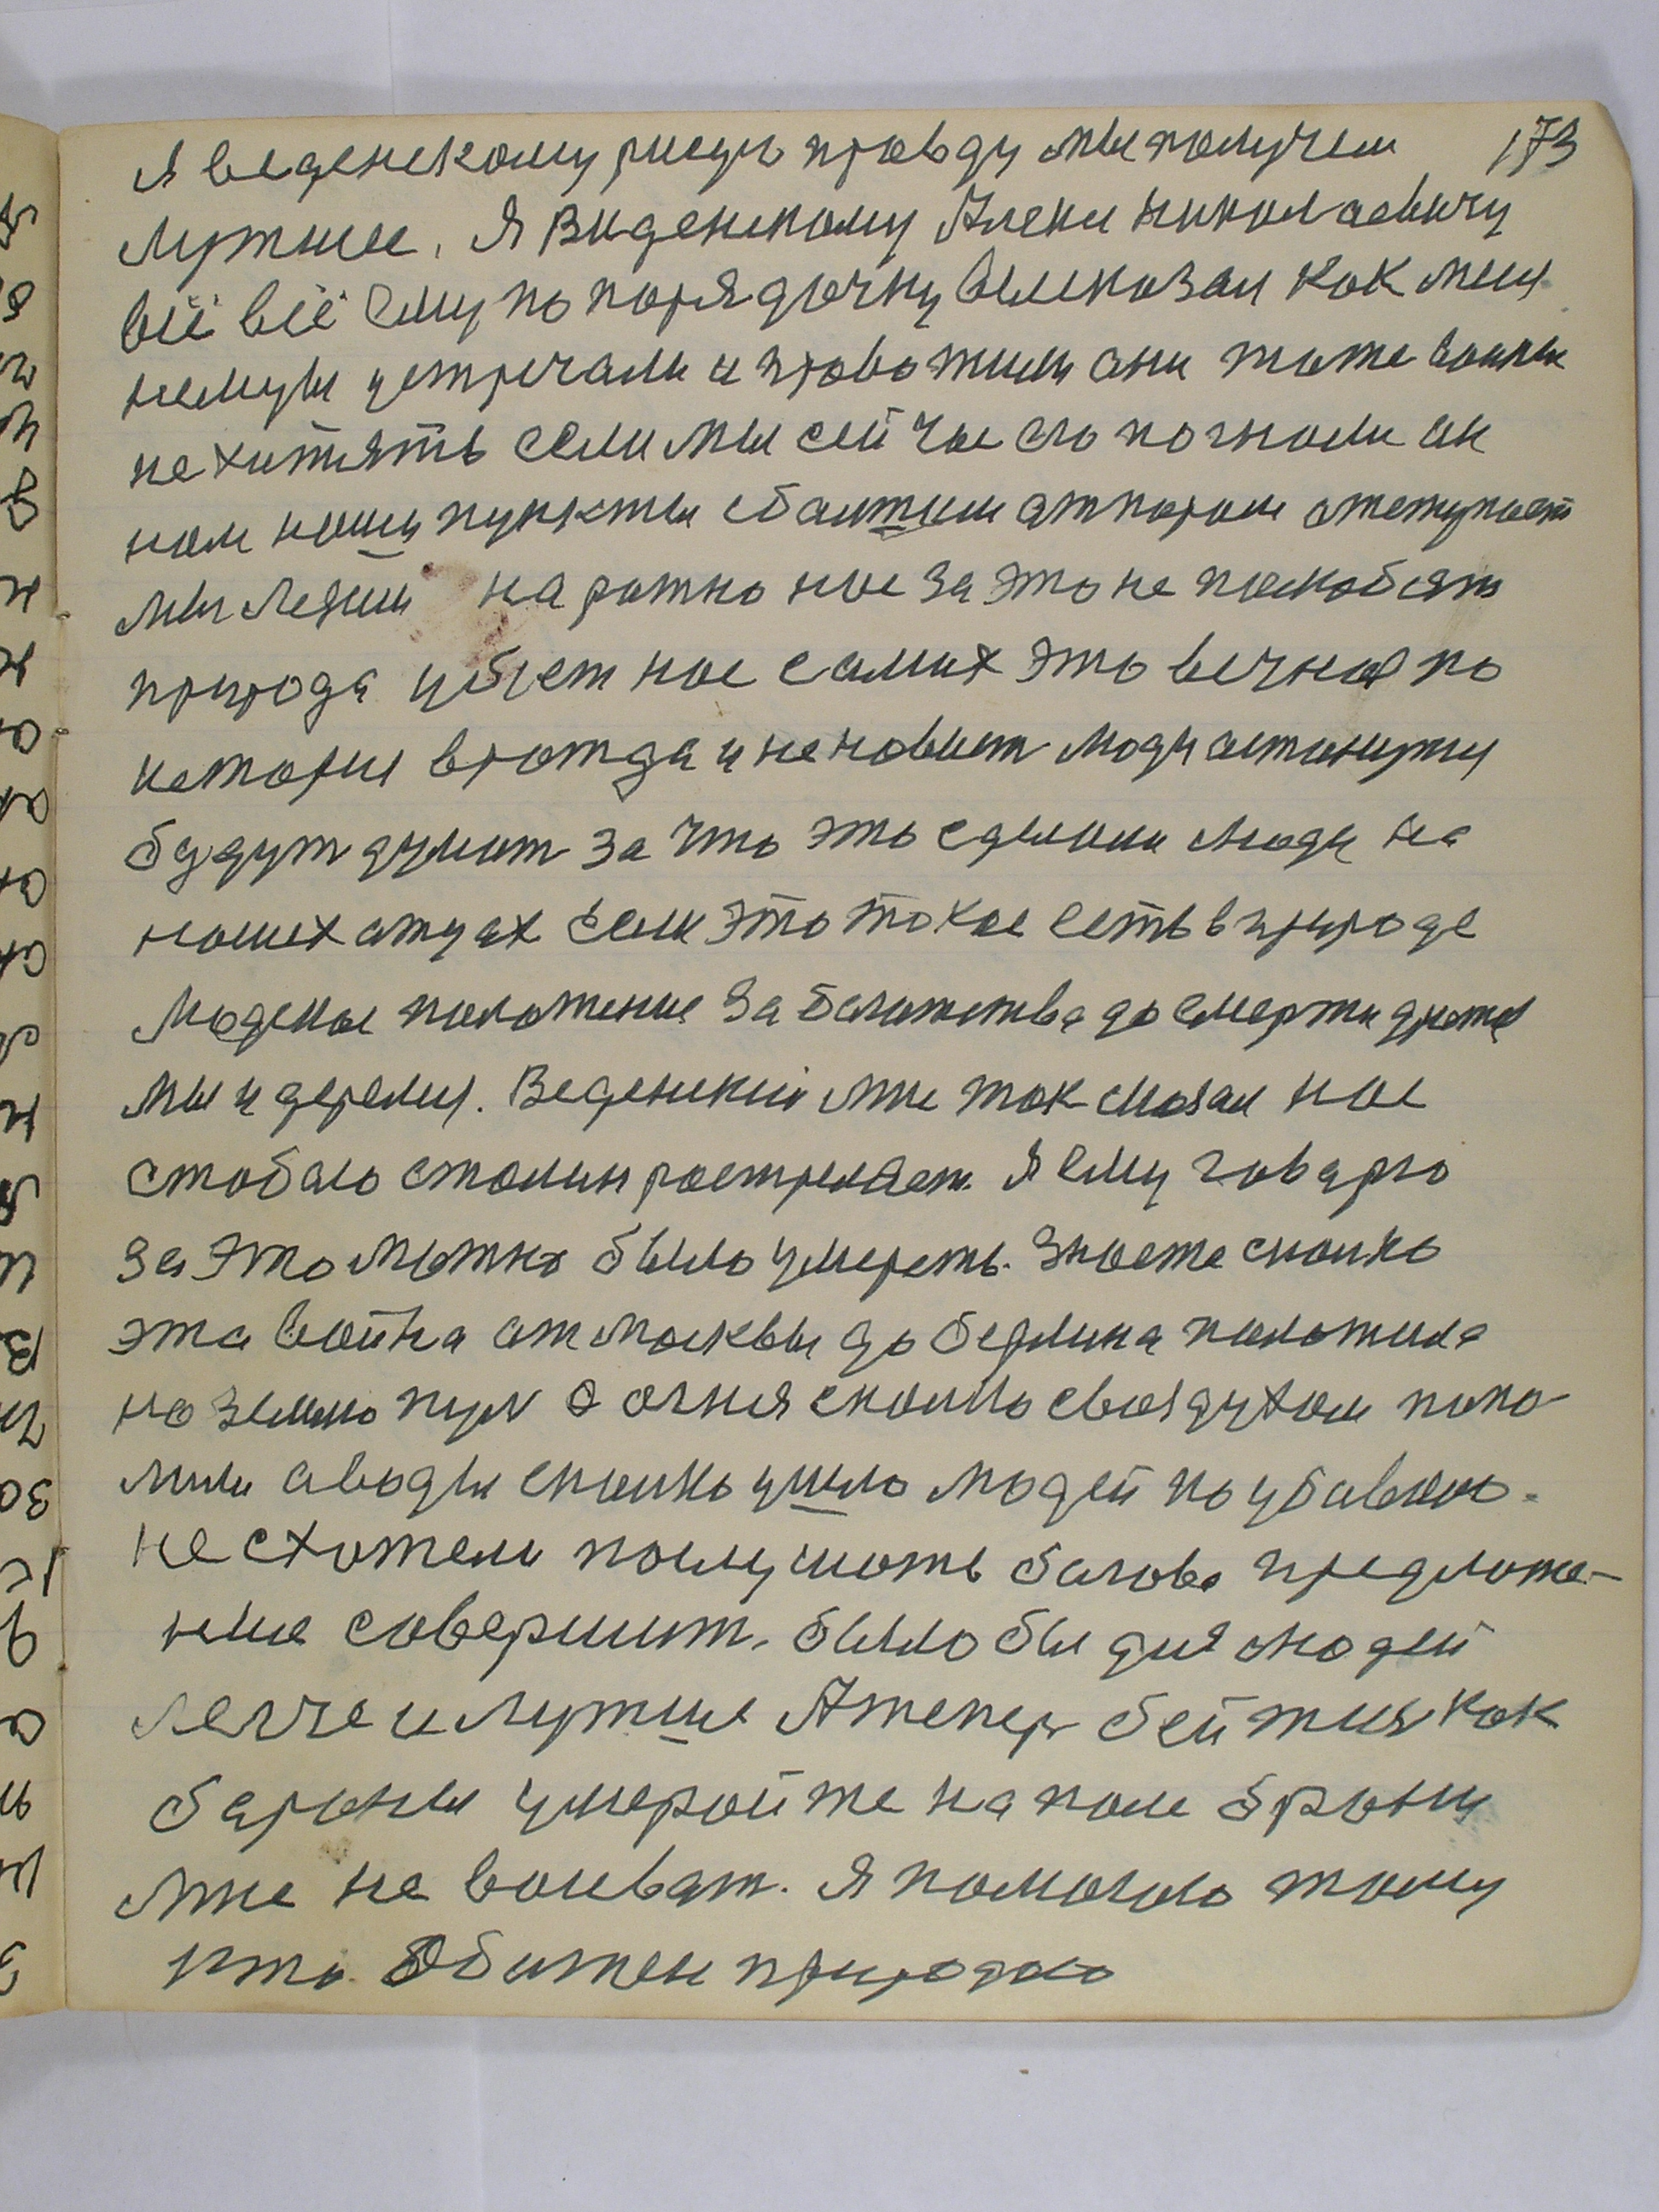 173
Я веденскому рисую правду мы получем
лутшее. Я Виденскому Алеки николаевичу
всё всё ему по порядочку высказал как меня
немцы устречали и провожили они тоже воины
не хитять если мы сейчас его погнали он
нам наши пункты сбаитши
мы ледши на ратно нас за это не похвобять
природа убьет нас самих это вечная по
история врожда и не новист люди астанутця
будут думат за что это сделали люди на
наших атцах если это токое есть в природе
людское положение за багатства до смерти дратця
мы и деремся. Веденский мне так сказал нас
стобаю сталин растреляет. Я ему говарю
за это можно было умереть. Знаете сколко
эта война от москвы до берлина положила
на землю пуль огня сколко своя духом
а воды сколко ушло людей по убавкою.
не схотели послушать богова предложе-
ние совершит. было бы для людей
легче и лутше А теперь бейтися как
бароны умерайте на поле брани
мне не воеват. Я помогаю тому
кто Обижен природаю